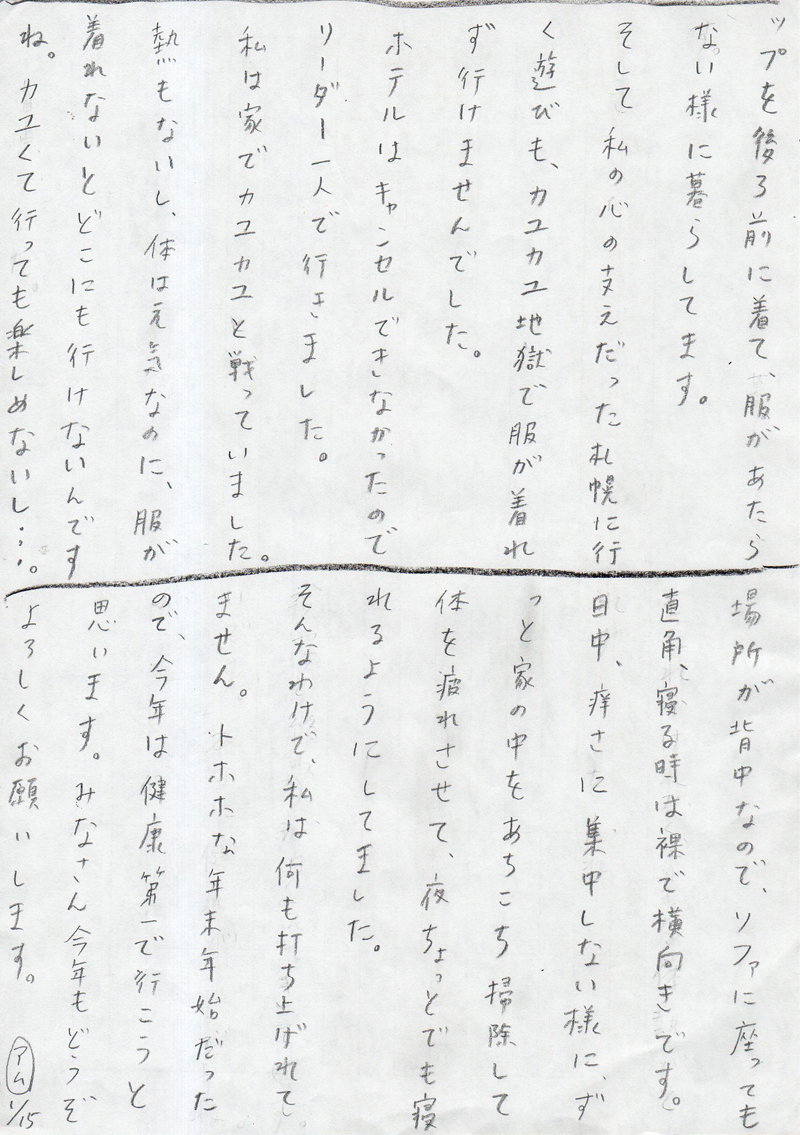 ップを後ろ前に着て、服があたら
ない様に暮らしてます。
そして私の心の支えだった札幌に行
く遊びも、カユカユ地獄で服が着れ
ず行けませんでした。
ホテルはキャンセルできなかったので
リーダー一人で行きました。
私は家でカユカユと戦っていました。
熱もないし、体は元気なのに、服が
着れないとどこにも行けないんです
ね。カユくて行っても楽しめないし…。
場所が背中なので、ソファに座っても
直角、寝る時は裸で横向きです。
日中、痒さに集中しない様に、ず
っと家の中をあちこち掃除して
体を疲れさせて、夜ちょっとでも寝
れるようにしてました。
そんなわけで、私は何も打ち上げれて
ません。トホホな年末年始だった
ので、今年は健康第一で行こうと
思います。みなさん今年もどうぞ
よろしくお願いします。
アム 1/15